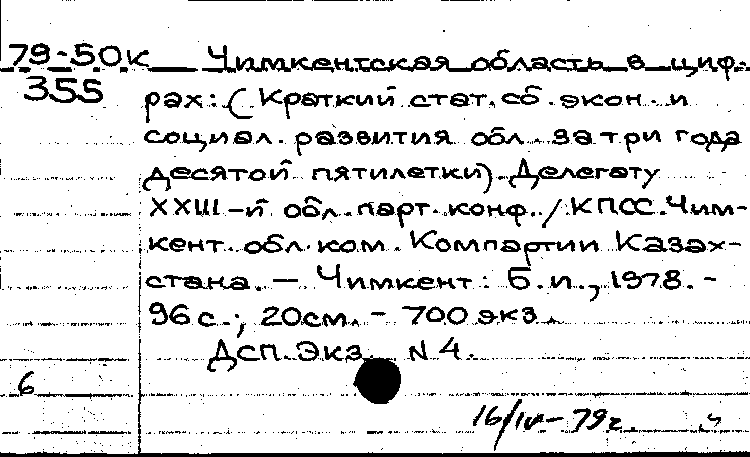 79-50к Чимкентская область в циф-
355 рах: (Краткий стат. сб. экон. и
социал. развития обл. за три года
десятой пятилетки). Делегату
XXIII-й обл. парт. конф. / КПСС. Чим-
кент. обл. ком. Компартии Казах-
стана. — Чимкент: Б.и., 1978. -
96 с.; 20см. - 700 экз.
Дсп. Экз. N 4.
6
16/IV-79г.